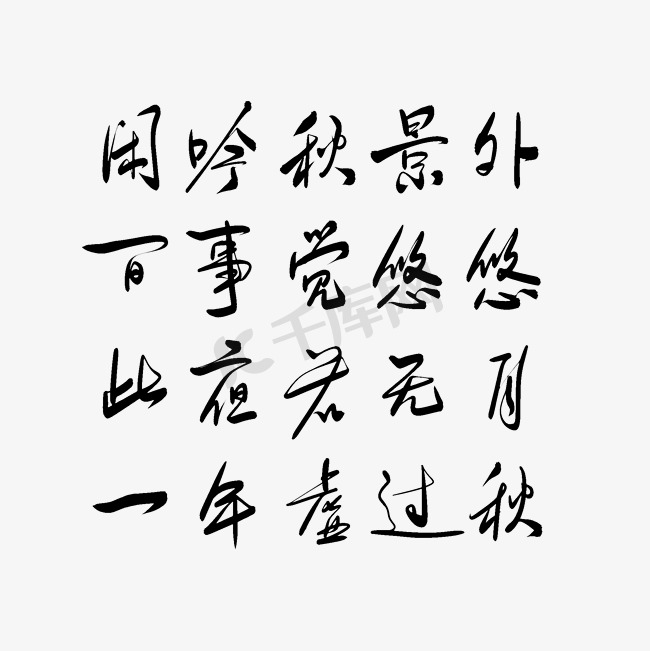 闲吟秋景外
百事觉悠悠
此夜若无月
一年虚过秋
千库网